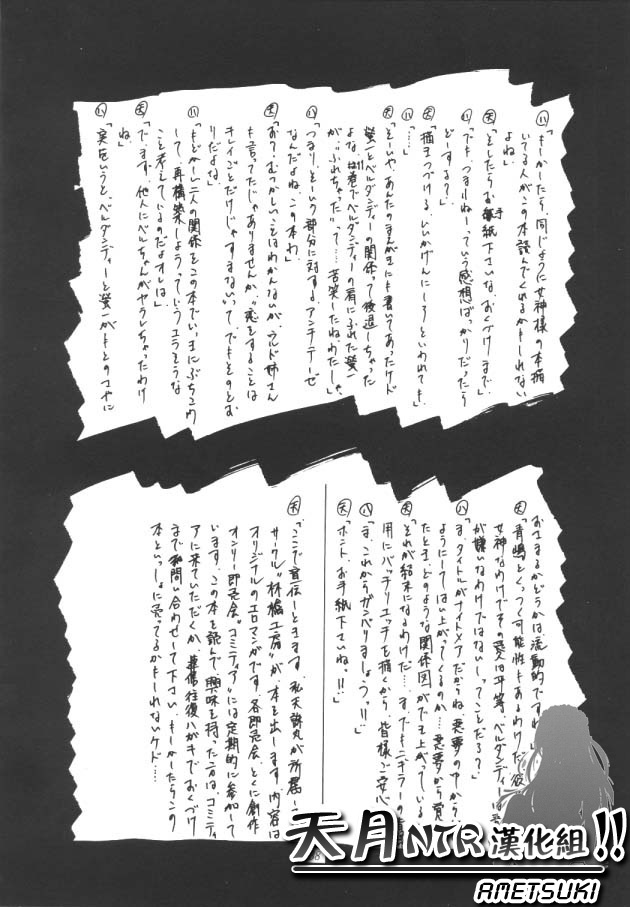 ㋩「もしかしたら、同じように女神様の本描
いてる人がこの本読んでくれるかもしれない
よね」
㋝「としたらお手紙下さいな、おくづけまで」
㋩「でも、つまんねーっていう感想ばっかりだったら
どーする?」
「描きつづける、いいかげんにしろといわれても」
㋩「……」
「そーいやあんたのまんがにも書いてあったケド
螢一とベルダンディーの関係って後退しちゃった
よな、11巻でベルダンディーの肩にふれた螢一
が"ふれちゃった"って……苦笑したねわたしゃ」
㋩「つまり、そーいう部分に対するアンチテーゼ
なんだよね、この本わ」
「お?、むつかしいことはわかんないが、ウルド姉さん
も言ってたじゃありませんか、"恋をすることは
キレイごとだけじゃすまない"って、でもそのとお
りだよな」
㋩「もどかしい二人の関係をこの本でいっきにぶちこわ
して、再構築しようっていうエラそうな
こと考えているのだよオレは」
「でまず、他人にベルちゃんがヤラレちゃったわけ
ね」
㋩「実をいうと、ベルダンディーと螢一がもとのさやに
おさまるかどうかは流動的ですね」
「青嶋とくっつく可能性もあるわけだ、彼
女神なわけでその愛は平等、ベルダンディーは
が嫌いなわけではないしってことだろ?」
㋩「ま、タイトルがナイトメアだからね、悪夢の中から
ようにしてはい上がってくるのか……悪夢から覚
たとき、どのような関係図ができ上がっている
「それが結末になるわけだ……、すでにニチラーの
用にバッチリエッチを描くから、皆様ご安心
㋩「ま、これからガンバりましょうっ!!」
「ホント、お手紙下さいね。!!」
「ここで宣伝しときます、私天誅丸が所属して
サークル"林檎工房"が本を出します、内容は
オリジナルのエロマンガです、各即売会、とくに創作
オンリー即売会"コミティア"には定期的に参加して
います、この本を読んで興味を持った方は、コミティ
アに来ていただくか、往復ハガキでおくづけ
まで問い合わせて下さい、もしかしたらこの
本といっしょに売ってるかもしれないケド……
天月NTR漢化組!!
AMETSUKI